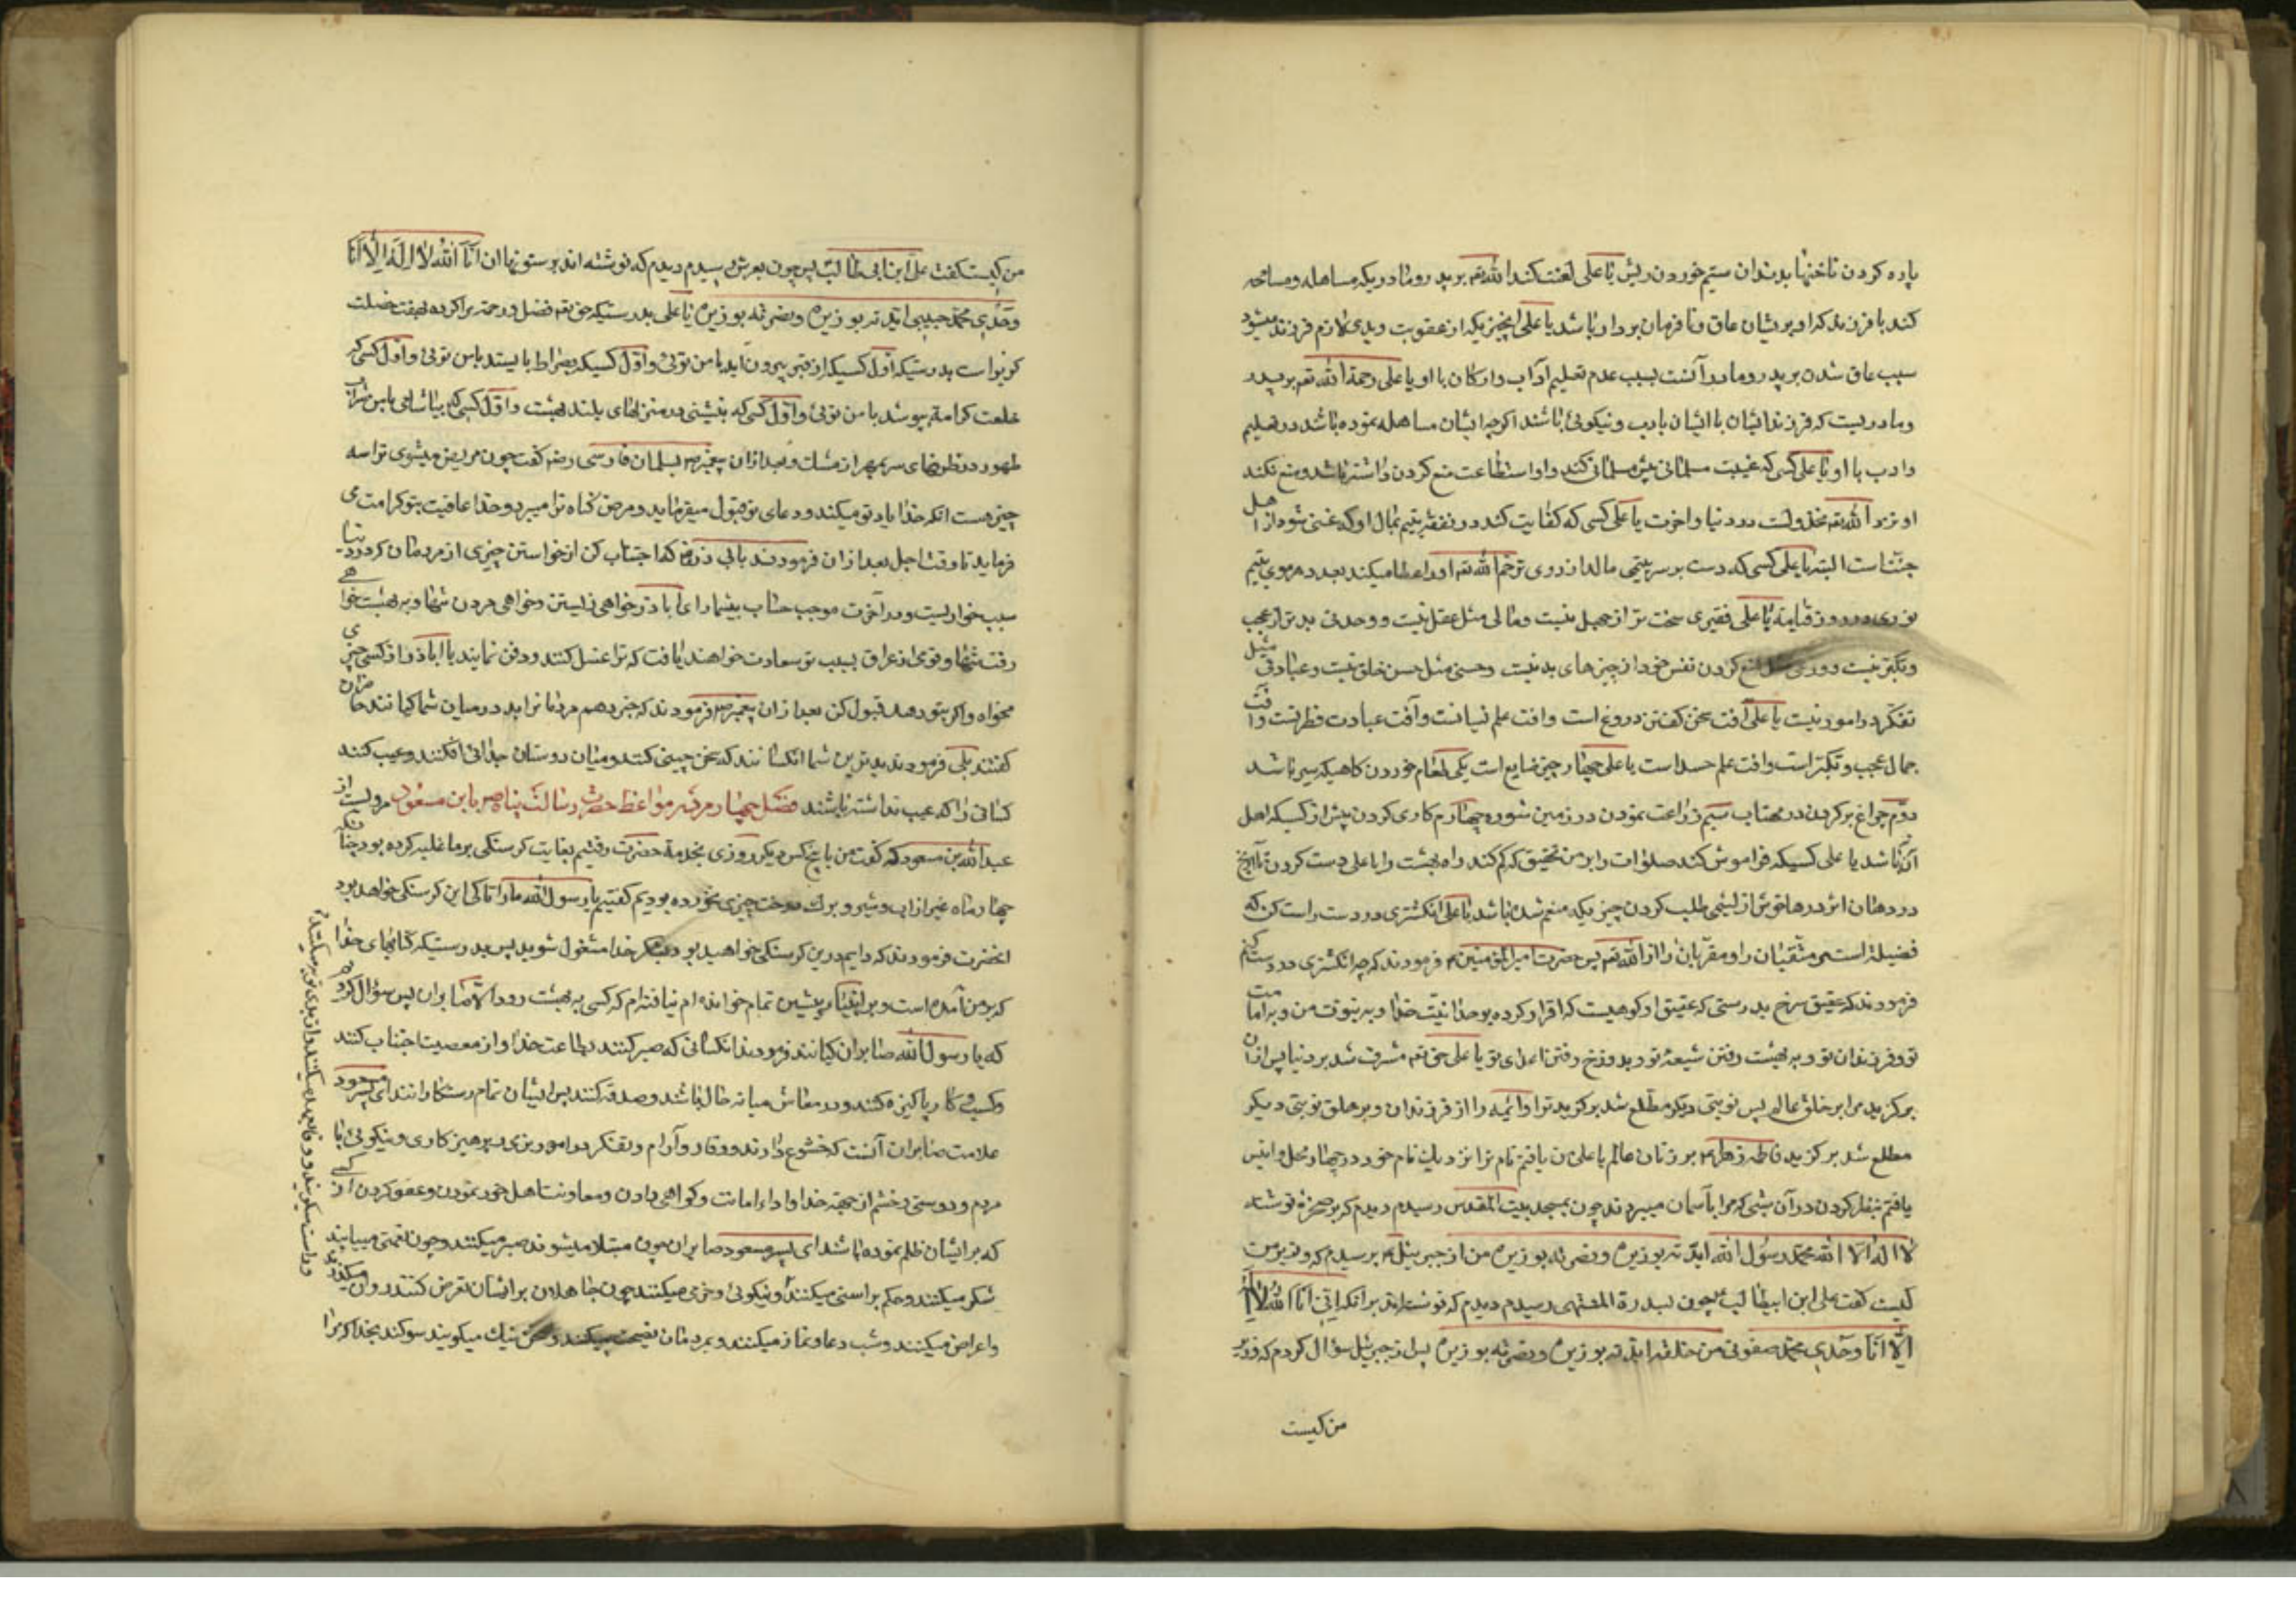 پاره کردن ناخنها بدندان سیم خوردن ریش یا علی لعنت کند الله تعم بر پدر و مادریکه مساهله و مسامحه
کند با فرزند که او بر ایشان عاق و نا فرمان بردار باشد یا علی انچیزیکه از عقوبت و بدی لازم فرزند میشود
سبب عاق شدن بر پدر و مادر آنست بسبب عدم تعلیم آداب و ارکان با او یا علی رحمة الله تعم بر پدر
و مادریست که فرزند ایشان با ایشان بادب و نیکوئی باشند اکرچه ایشان مساهله نموده باشد در تعلیم
و ادب با او یا علی کسی که غیبت مسلمانی پیش مسلمانی کند و او استطاعت منع کردن داشته باشد و منع نکند
او نزد الله تعم مخذولست در دنیا و اخرت یا علی کسی که کفایت کند در نفقه یتیم بمال او که غنی شود از اهل
جنت است البته یا علی کسی که دست بر سر یتیمی مالد از روی ترحم الله تعم او را عطا میکند بعدد هر موی یتیم
نوری در روز قیامة یا علی فقیری سخت تر از جهل نیست و مالی مثل عقل نیست و وحدتی بدتر از عجب
و تکبر نیست و ورعی مثل منع کردن نفس خود از چیزهای بد نیست و حسنی مثل حسن خلق نیست و عبادتی مثل
تفکر در امور نیست یا علی آفت سخن کفتن دروغ است و افت علم نسیانست و آفت عبادت فطرتست و آفت
جمال عجب و تکبر است و افت علم حسد است یا علی چهار چیز ضایع است یکی طعام خوردن کاهیکه سیر باشد
دوم چراغ بر کردن در مهتاب سیم زراعت نمودن در زمین شوره چهارم کاری کردن پیش از کسیکه اهل
آن نباشد یا علی کسیکه فراموش کند صلوات را بر من تحقیق که کم کند راه بهشت را یا علی دست کردن تا آرنج
در دهان اژدرها خوش از لئیمی طلب کردن چیزیکه منعم شده باشد یا علی انکشتری در دست راست کن که
فضیلة است متقیان را و مقربان را از الله تعم پس حضرت امیر المؤمنین ع فرمودند که چه انکشتری در دست کنم
فرمودند که عقیق سرخ بدرستی که عقیق او کوهیست که اقرار کرده بوحدانیت خدا و به نبوت من و به امامت
تو و فرزندان تو و به بهشت رفتن شیعهٔ تو و بدوزخ رفتن اعدای تو یا علی حق تعم مشرف شد بر دنیا پس از ان
برکزید مرا بر خلق عالم پس نوبتی دیکر مطلع شد برکزید ترا و ائمه را از فرزندان و بر خلق نوبتی دیکر
مطلع شد برکزید فاطمه زهرا ع بر زنان عالم یا علی من یافتم نام ترا نزدیک نام خود در چهار محل و انیس
یافتم بنظر کردن در آن شبی که مرا بآسمان میبردند چون بمسجد بیت المقدس رسیدم دیدم که بر صخره نوشته
لا اله الا الله محمد رسول الله ایدته بوزیره و نصرته بوزیره من از جبرئیل ع پرسیدم که وزیر من
کیست کفت علی ابن ابیطالب ع چون بسدرة المنتهی رسیدم دیدم که نوشته اند بر انکه اننی انا الله لا اله
الا انا وحدی محمد صفوتی من خلقه ایدته بوزیره و نصرته بوزیره پس از جبرئیل سؤال کردم که وزیر
من کیست
من کیست کفت علی ابن ابی طالب پس چون بعرش رسیدم دیدم که نوشته اند بر ستونها ان انا الله لا اله الا انا
وحدی محمد حبیبی ایدته بوزیره و نصرته بوزیره یا علی بدرستیکه حق تعم فضل و رحمة مرا کرده بهفت خصلت
کر تو است بدرستیکه اول کسیکه از قبر بیرون آید با من توئی و اول کسیکه بصراط بایستد با من توئی و اول کسی که
خلعت کرامة پوشد با من توئی و اول کسی که بنشینی در منزلهای بلند بهشت و اول کسی که بیاشامی با من شراب
طهور در ظرفهای سر بمهر از مشک و بعد از ان پیغمبر ص بسلمان فارسی رضه کفت چون مریض میشوی ترا سه
چیز هست انکه خدا یاد تو میکند و دعای تو قبول میفرماید و مرض کناه ترا میبرد و خدا عافیت بتو کرامت می
فرماید تا وقت اجل بعد از ان فرمودند بابی ذر رضه که اجتناب کن از خواستن چیزی از مردمان که در دنیا
سبب خواریست و در آخرت موجب حساب بیشمار ای اباذر خواهی زیستن و خواهی مردن تنها و به بهشت خواهی
رفت تنها و قومی از عراق بسبب تو سعادت خواهند یافت که ترا غسل کنند و دفن نمایند یا اباذر از کسی چیزی
مخواه و اکر بتو دهد قبول کن بعد از ان پیغمبر ص فرمودند که خبر دهم مردمانرا بد در میان شما کیانند حاضران
کفتند بلی فرمودند بدترین شما انکسانند که سخن چینی کنند و میان دوستان جدائی افکنند و عیب کنند
کسانی را که عیب نداشته باشند فصل چهارم در مواعظ حضرت رسالت پناه ص بابن مسعود مرویست از
عبد الله بن مسعود که کفت من با پنج کس دیکر روزی بخدمة حضرت رفتیم بغایت کرسنکی بر ما غلبه کرده بود چنانکه
چهار ماه غیر از اب و شیر و برک درخت چیزی نخورده بودیم کفتیم یا رسول الله ما را تا کی این کرسنکی خواهد بود
انحضرت فرمودند که دایم درین کرسنکی خواهید بود بشکر خدا مشغول شوید پس بدرستیکه کتابهای خدا
که بر من آمده است و بر انبیاء پیشین تمام خوانده ام نیافته ام که کسی به بهشت رود الا صابران پس سؤال کردم
که یا رسول الله صابران کیانند فرمودند انکسانی که صبر کنند بطاعت خدا و از معصیت اجتناب کنند
و کسب و کار پاکیزه کنند و در معاش میانه حال باشد و صدقه کنند پس ایشان تمام رستکارانند ای پسر مسعود
علامت صابران آنست که خشوع دارند و وقار و آرام و تفکر در امور بزی پرهیزکاری و نیکوئی با
مردم و دوستی و خشم از جهة خدا و اداء امانت و کواهی دادن و معاونت اهل خود نمودن و عفو کردن از کسی
که بر ایشان ظلم نموده باشد ای پسر مسعود صابران چون مبتلا میشوند صبر میکنند و چون نعمتی مییابند
شکر میکنند و حکم براستی میکنند و نیکوئی و خرمی میکنند چون جاهلان بر ایشان تعرض کنند روان میکذرند
و اعراض میکنند و شب دعا و نماز میکنند و بمردمان نصیحت میکنند و سخن نیک میکویند سوکند بخدا که مرا